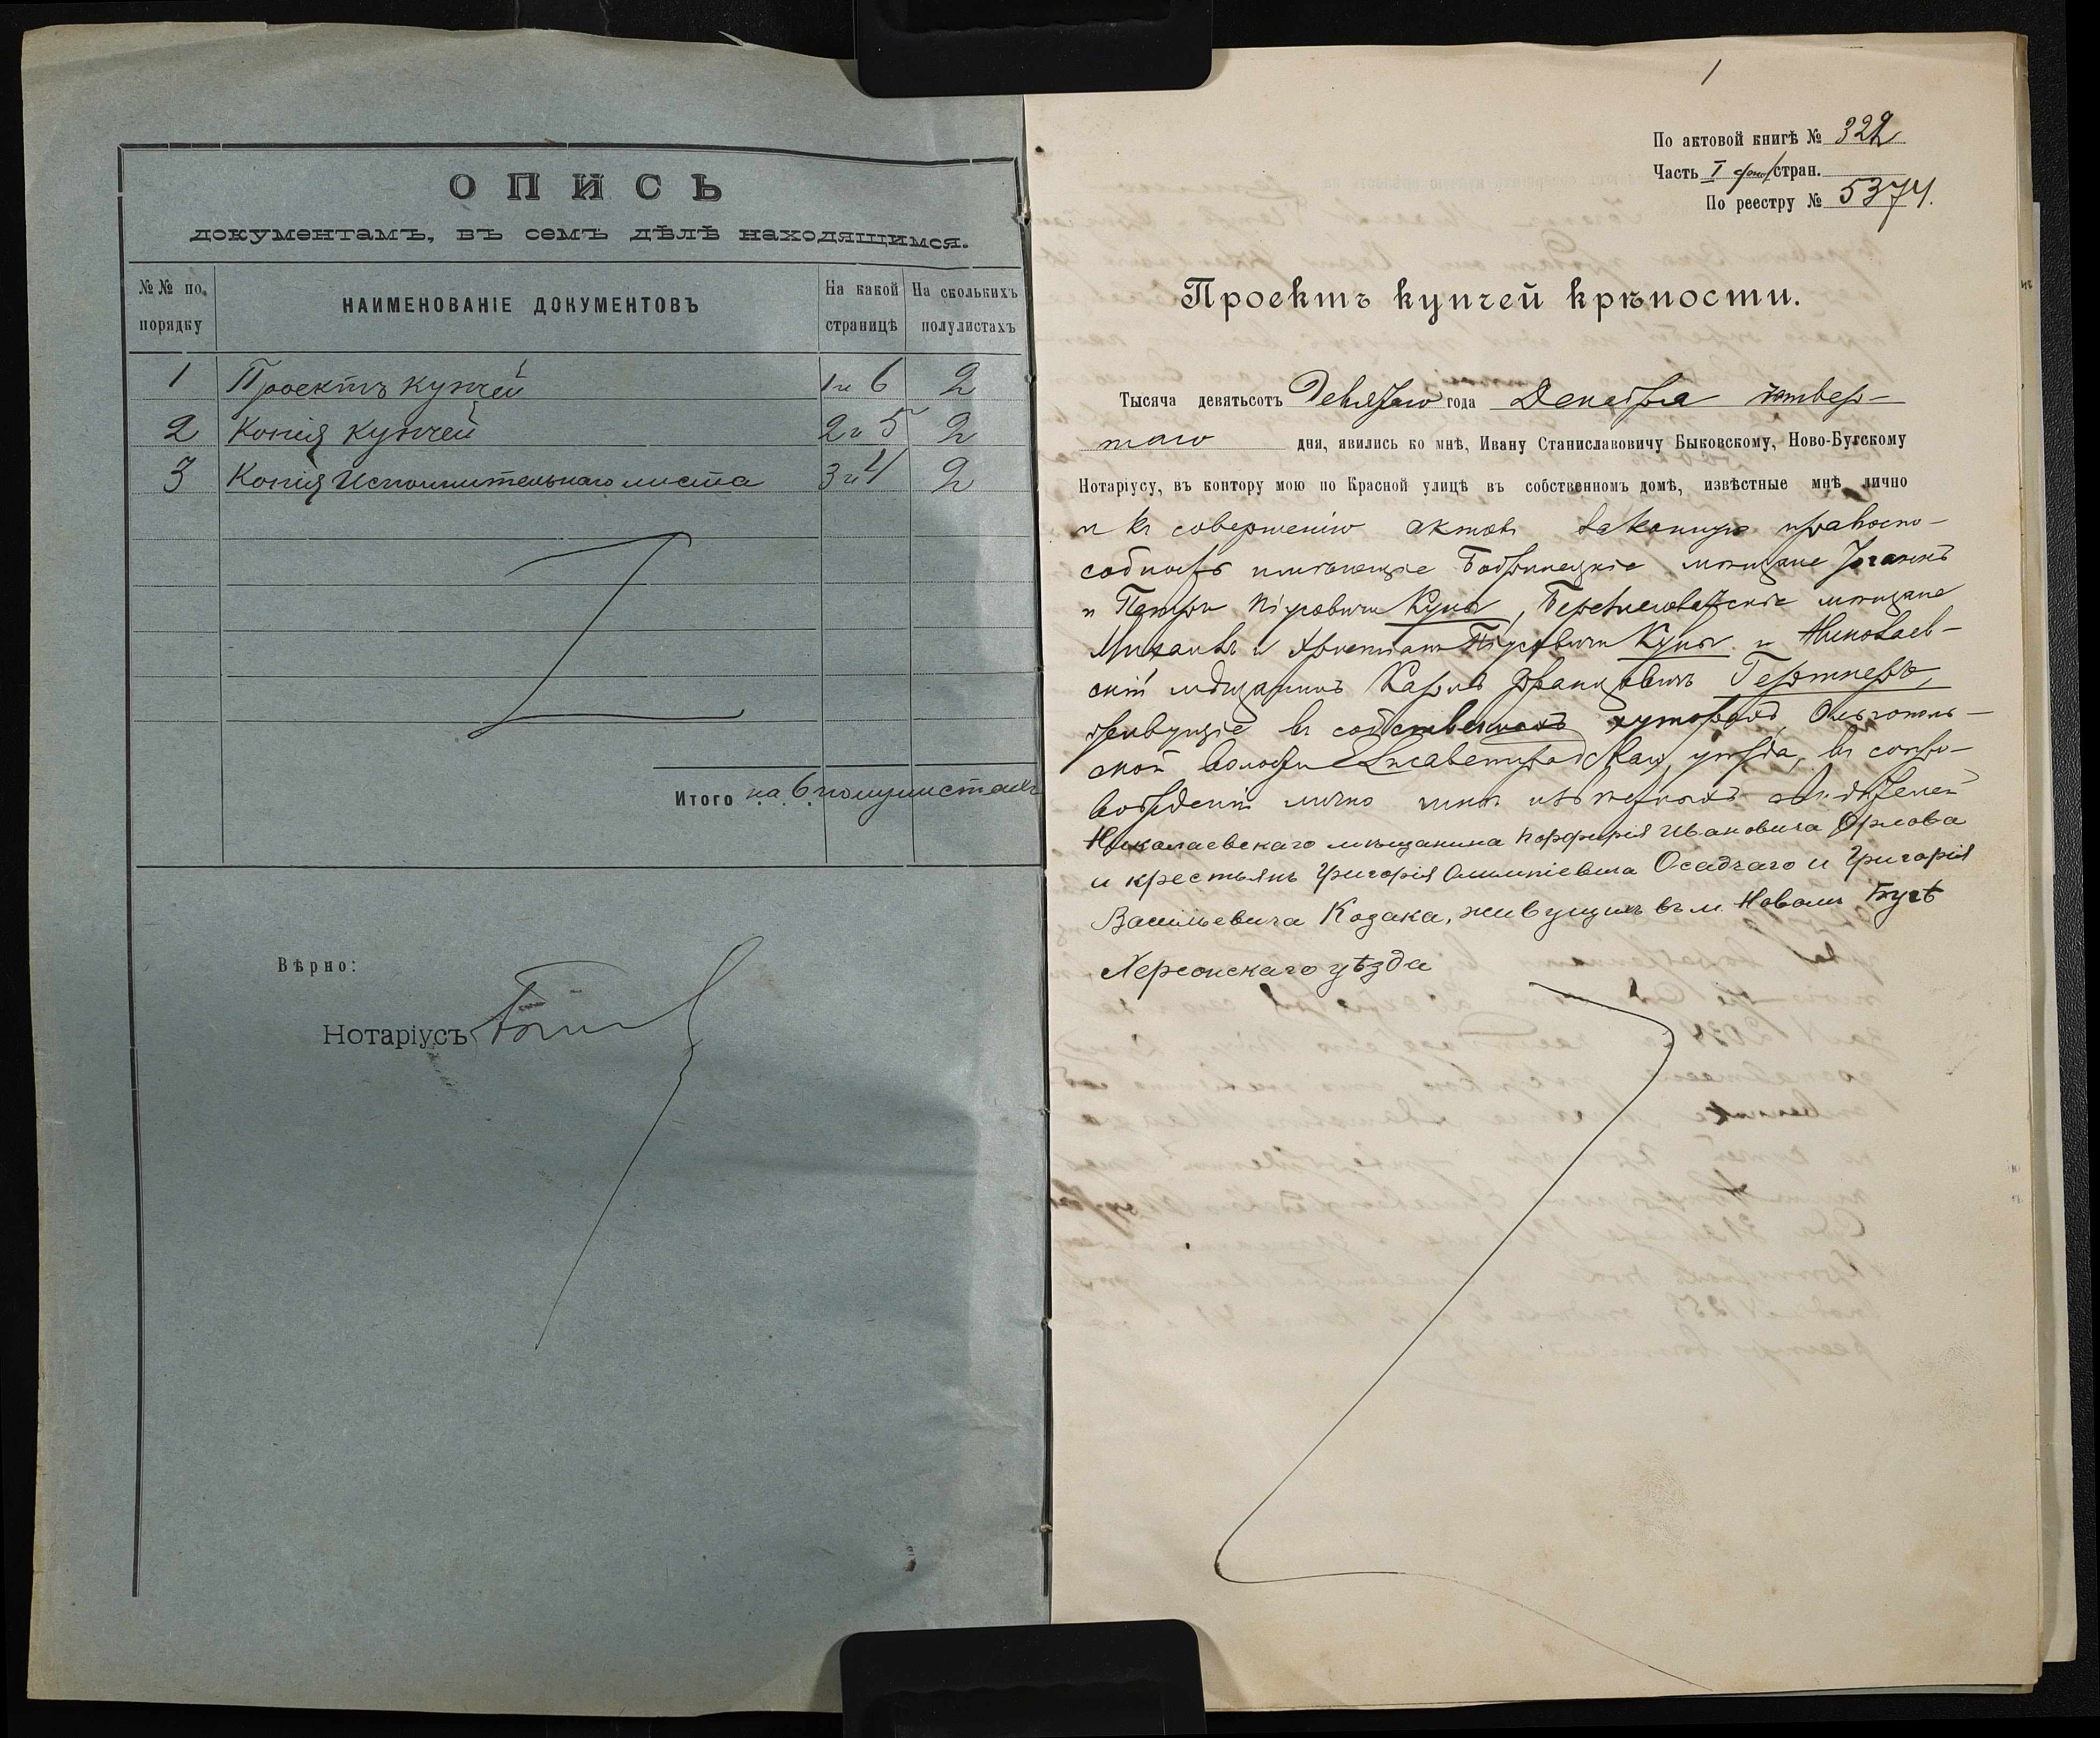 ОПИСЬ
документамъ, въ семъ дѣлѣ находящимся.
№№ по порядку
НАИМЕНОВАНІЕ ДОКУМЕНТОВЪ
На какой страницѣ
На сколькихъ полулистахъ
1 Проектъ купчей 1 и 6 2
2 Копія купчей 2 и 5 2
3 Копія Исполнительнаго листа 3 и 4 2
Итого на 6 полулистахъ
Вѣрно:
Нотаріусъ
1
По актовой книгѣ № 322
Часть I стран.
По реестру № 5374.
Проектъ купчей крѣпости.
Тысяча девятьсотъ Девятаго года Декабря четвер-
таго дня, явились ко мнѣ, Ивану Станиславовичу Быковскому, Ново-Бугскому
Нотаріусу, въ контору мою по Красной улицѣ въ собственномъ домѣ, извѣстные мнѣ лично
и къ совершенію актовъ законную правоспо-
собность имѣющіе Бобринецкіе мѣщане
и Петръ Кунъ, Березнеговатскіе мѣщане
Михаилъ и Христіанъ Кунъ и Николаев-
скій мѣщанинъ Карлъ Францовичъ Гертнеръ,
живущіе въ собственныхъ хуторахъ, Ольгополь-
ской волости Елисаветградскаго уѣзда, въ сопро-
вожденіи лично мнѣ извѣстныхъ свидѣтелей
Николаевскаго мѣщанина Порфирія Ивановича Орлова
и крестьянъ Григорія Олимпіевича Осадчаго и Григорія
Васильевича Козака, живущихъ въ м. Новомъ Бугѣ
Херсонскаго уѣзда